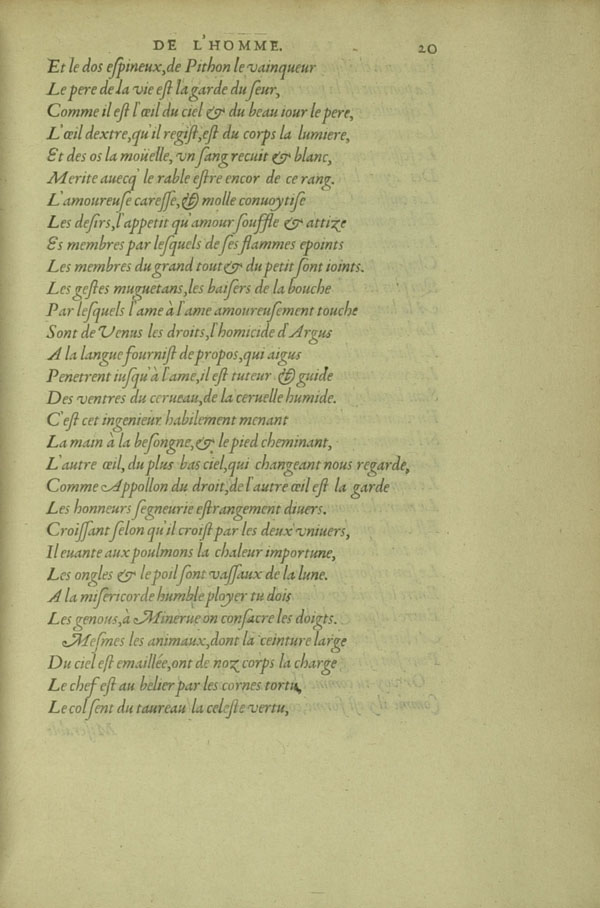 DE L'HOMME. 20
Et le dos eſpineux,de Pithon le vainqueur
Le pere de la vie eſt la garde du ſeur,
Comme il eſt l'œil du ciel & du beau iour le pere,
L'œil dextre,qu'il regiſt,eſt du corps la lumiere,
Et des os la moüelle, vn ſang recuit & blanc,
Merite auecq' le rable eſtre encor de ce rang.
L'amoureuſe careſſe, & molle conuoytiſe
Les deſirs,l'appetit qu'amour ſouffle & attize
Es membres par leſquels de ſes flammes epoints
Les membres du grand tout & du petit ſont ioints.
Les geſtes muguetans,les baiſers de la bouche
Par leſquels l'ame à l'ame amoureuſement touche
Sont de Venus les droits,l'homicide d'Argus
A la langue fourniſt de propos,qui aigus
Penetrent iuſqu'à l'ame,il eſt tuteur & guide
Des ventres du cerueau,de la ceruelle humide.
C'eſt cet ingenieur habilement menant
La main à la beſongne, & le pied cheminant,
L'autre œil, du plus bas ciel,qui changeant nous regarde,
Comme Appollon du droit,de l'autre œil eſt la garde
Les honneurs ſegneurie eſtrangement diuers.
Croiſſant ſelon qu'il croiſt par les deux vniuers,
Il euante aux poulmons la chaleur importune,
Les ongles & le poil ſont vaſſaux de la lune.
A la miſericorde humble ployer tu dois
Les genous,à Minerue on conſacre les doigts.
Meſmes les animaux,dont la ceinture large
Du ciel eſt emaillée,ont de noz corps la charge
Le chef eſt au belier par les cornes tortu,
Le col ſent du taureau la celeſte vertu,